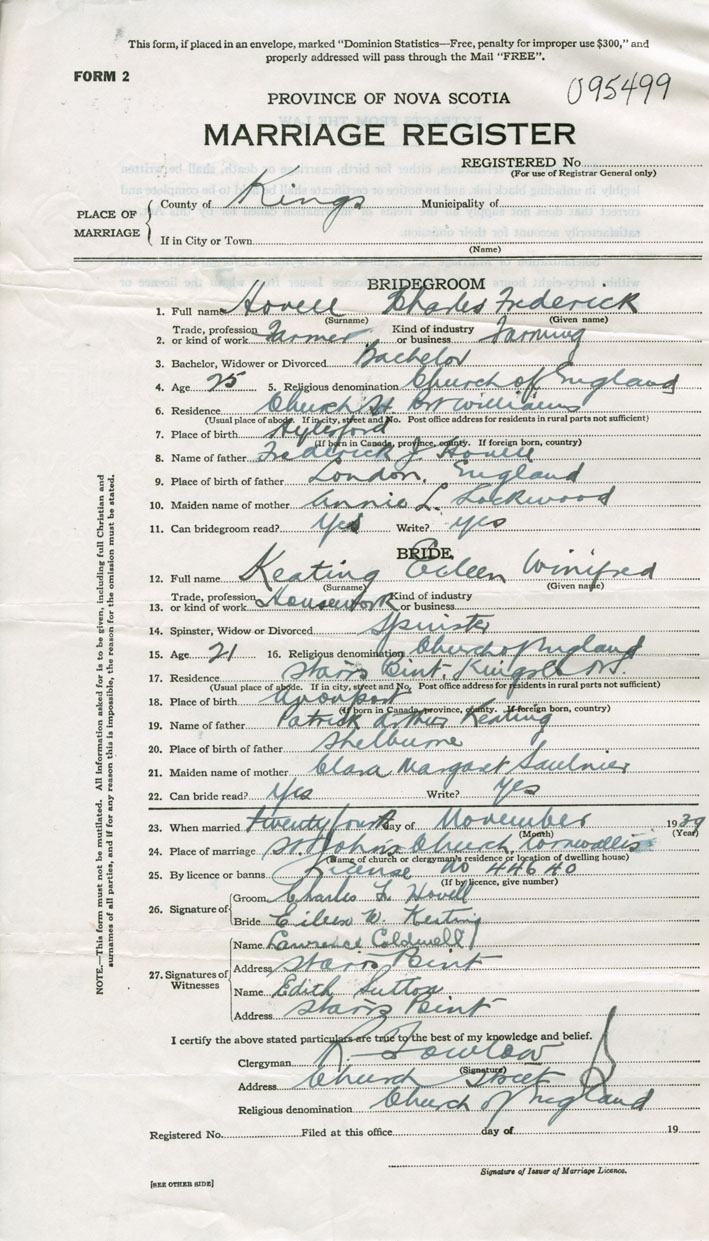 This form, if placed in an envelope, marked "Dominion Statistics—Free, penalty for improper use $300," and
properly addressed will pass through the Mail "FREE".
FORM 2
095499
PROVINCE OF NOVA SCOTIA
MARRIAGE REGISTER
REGISTERED No.
(For use of Registrar General only)
PLACE OF MARRIAGE
County of Kings Municipality of
If in City or Town
(Name)
BRIDEGROOM
1. Full name Hovell Charles Frederick
(Surname) (Given name)
2. Trade, profession or kind of work Farmer Kind of industry or business Farming
3. Bachelor, Widower or Divorced Bachelor
4. Age 25 5. Religious denomination Church of England
6. Residence Church St Pt Williams
(Usual place of abode. If in city, street and No. Post office address for residents in rural parts not sufficient)
7. Place of birth Aylesford
(If born in Canada, province, county. If foreign born, country)
8. Name of father Frederick J Hovell
9. Place of birth of father London, England
10. Maiden name of mother Annie L. Lockwood
11. Can bridegroom read? Yes Write? yes
BRIDE
12. Full name Keating Eileen Winifred
(Surname) (Given name)
13. Trade, profession or kind of work Housework Kind of industry or business
14. Spinster, Widow or Divorced Spinster
15. Age 21 16. Religious denomination Church of England
17. Residence Starrs Point, Kings Co N.S.
(Usual place of abode. If in city, street and No. Post office address for residents in rural parts not sufficient)
18. Place of birth Avonport
(If born in Canada, province, county. If foreign born, country)
19. Name of father Patrick Keating
20. Place of birth of father Shelburne
21. Maiden name of mother Clara Margaret Saulnier
22. Can bride read? Yes Write? Yes
23. When married twenty fourth day of November 1939
(Month) (Year)
24. Place of marriage St Johns Church, Cornwallis
(Name of church or clergyman's residence or location of dwelling house)
25. By licence or banns License No 44640
(If by licence, give number)
26. Signature of
Groom Charles F. Hovell
Bride Eileen W. Keating
27. Signatures of Witnesses
Name Lawrence Coldwell
Address Starrs Point
Name Edith Sutton
Address Starrs Point
I certify the above stated particulars are true to the best of my knowledge and belief.
Clergyman
(Signature)
Address Church Street
Religious denomination Church of England
Registered No. Filed at this office day of 19
Signature of Issuer of Marriage Licence.
[SEE OTHER SIDE]
NOTE.—This form must not be mutilated. All information asked for is to be given, including full Christian and
surnames of all parties, and if for any reason this is impossible, the reason for the omission must be stated.